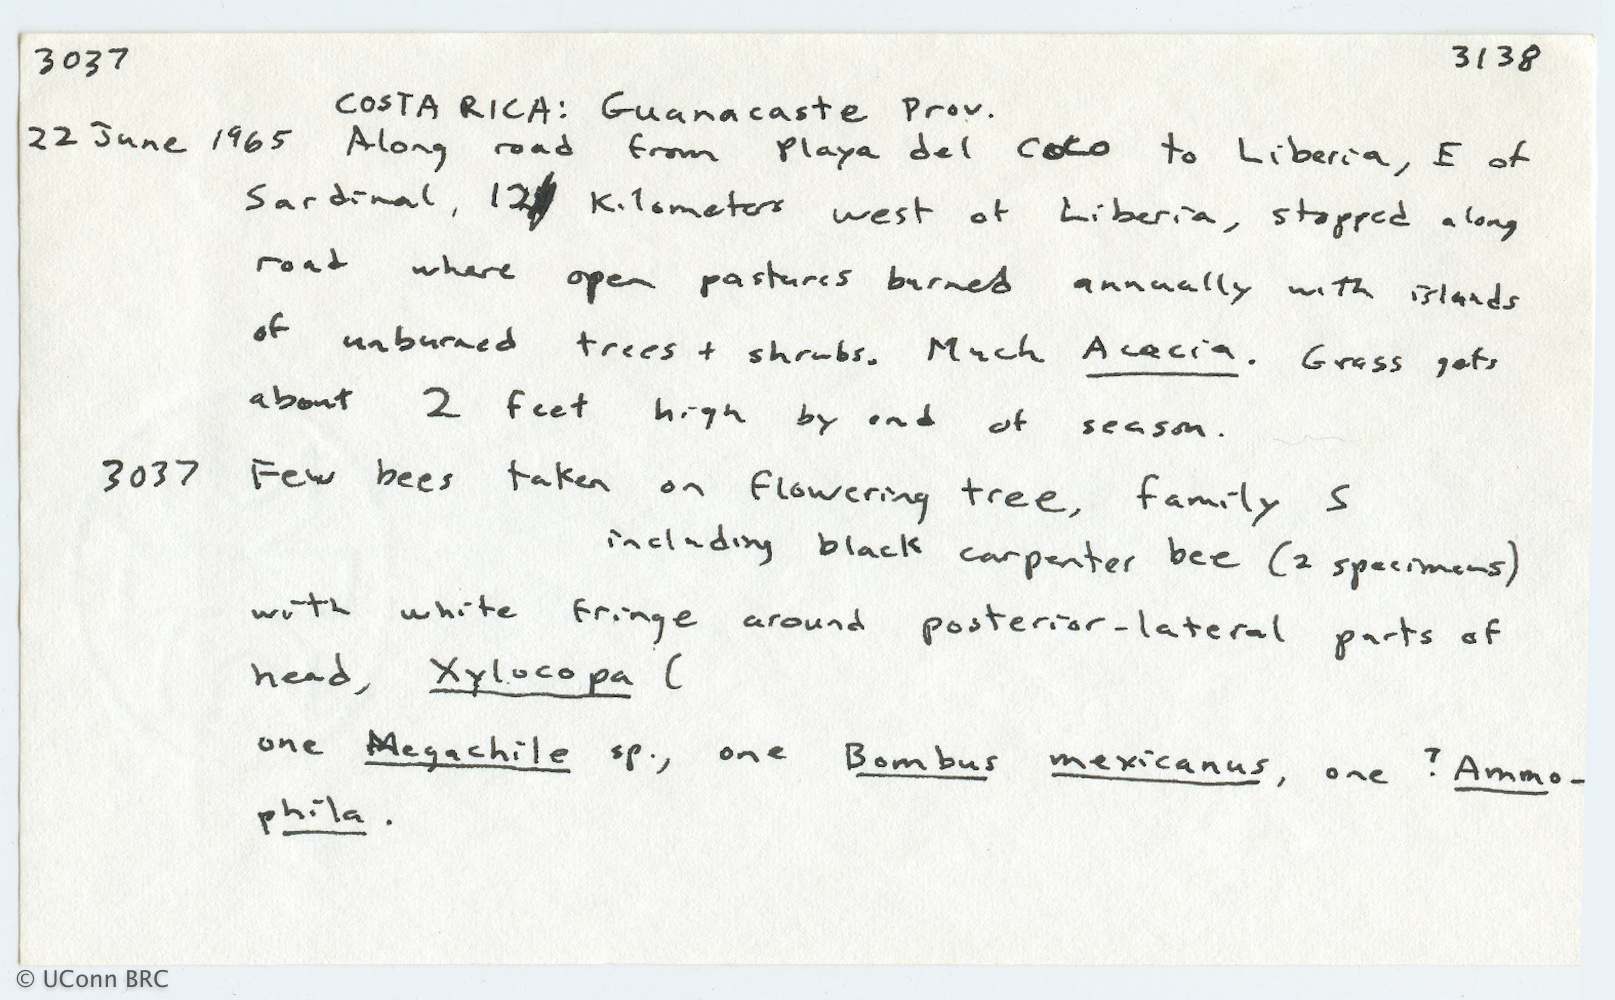 3037 3138
COSTA RICA: Guanacaste Prov.
22 June 1965 Along road from Playa del Coco to Liberia, E of
Sardinal, 12 Kilometers west of Liberia, stopped along
road where open pastures burned annually with islands
of unburned trees + shrubs. Much Acacia. Grass gets
about 2 feet high by end of season.
3037 Few bees taken on flowering tree, family S
including black carpenter bee (2 specimens)
with white fringe around posterior-lateral parts of
head, Xylocopa (
one Megachile sp., one Bombus mexicanus, one ? Ammo-
phila.
© UConn BRC